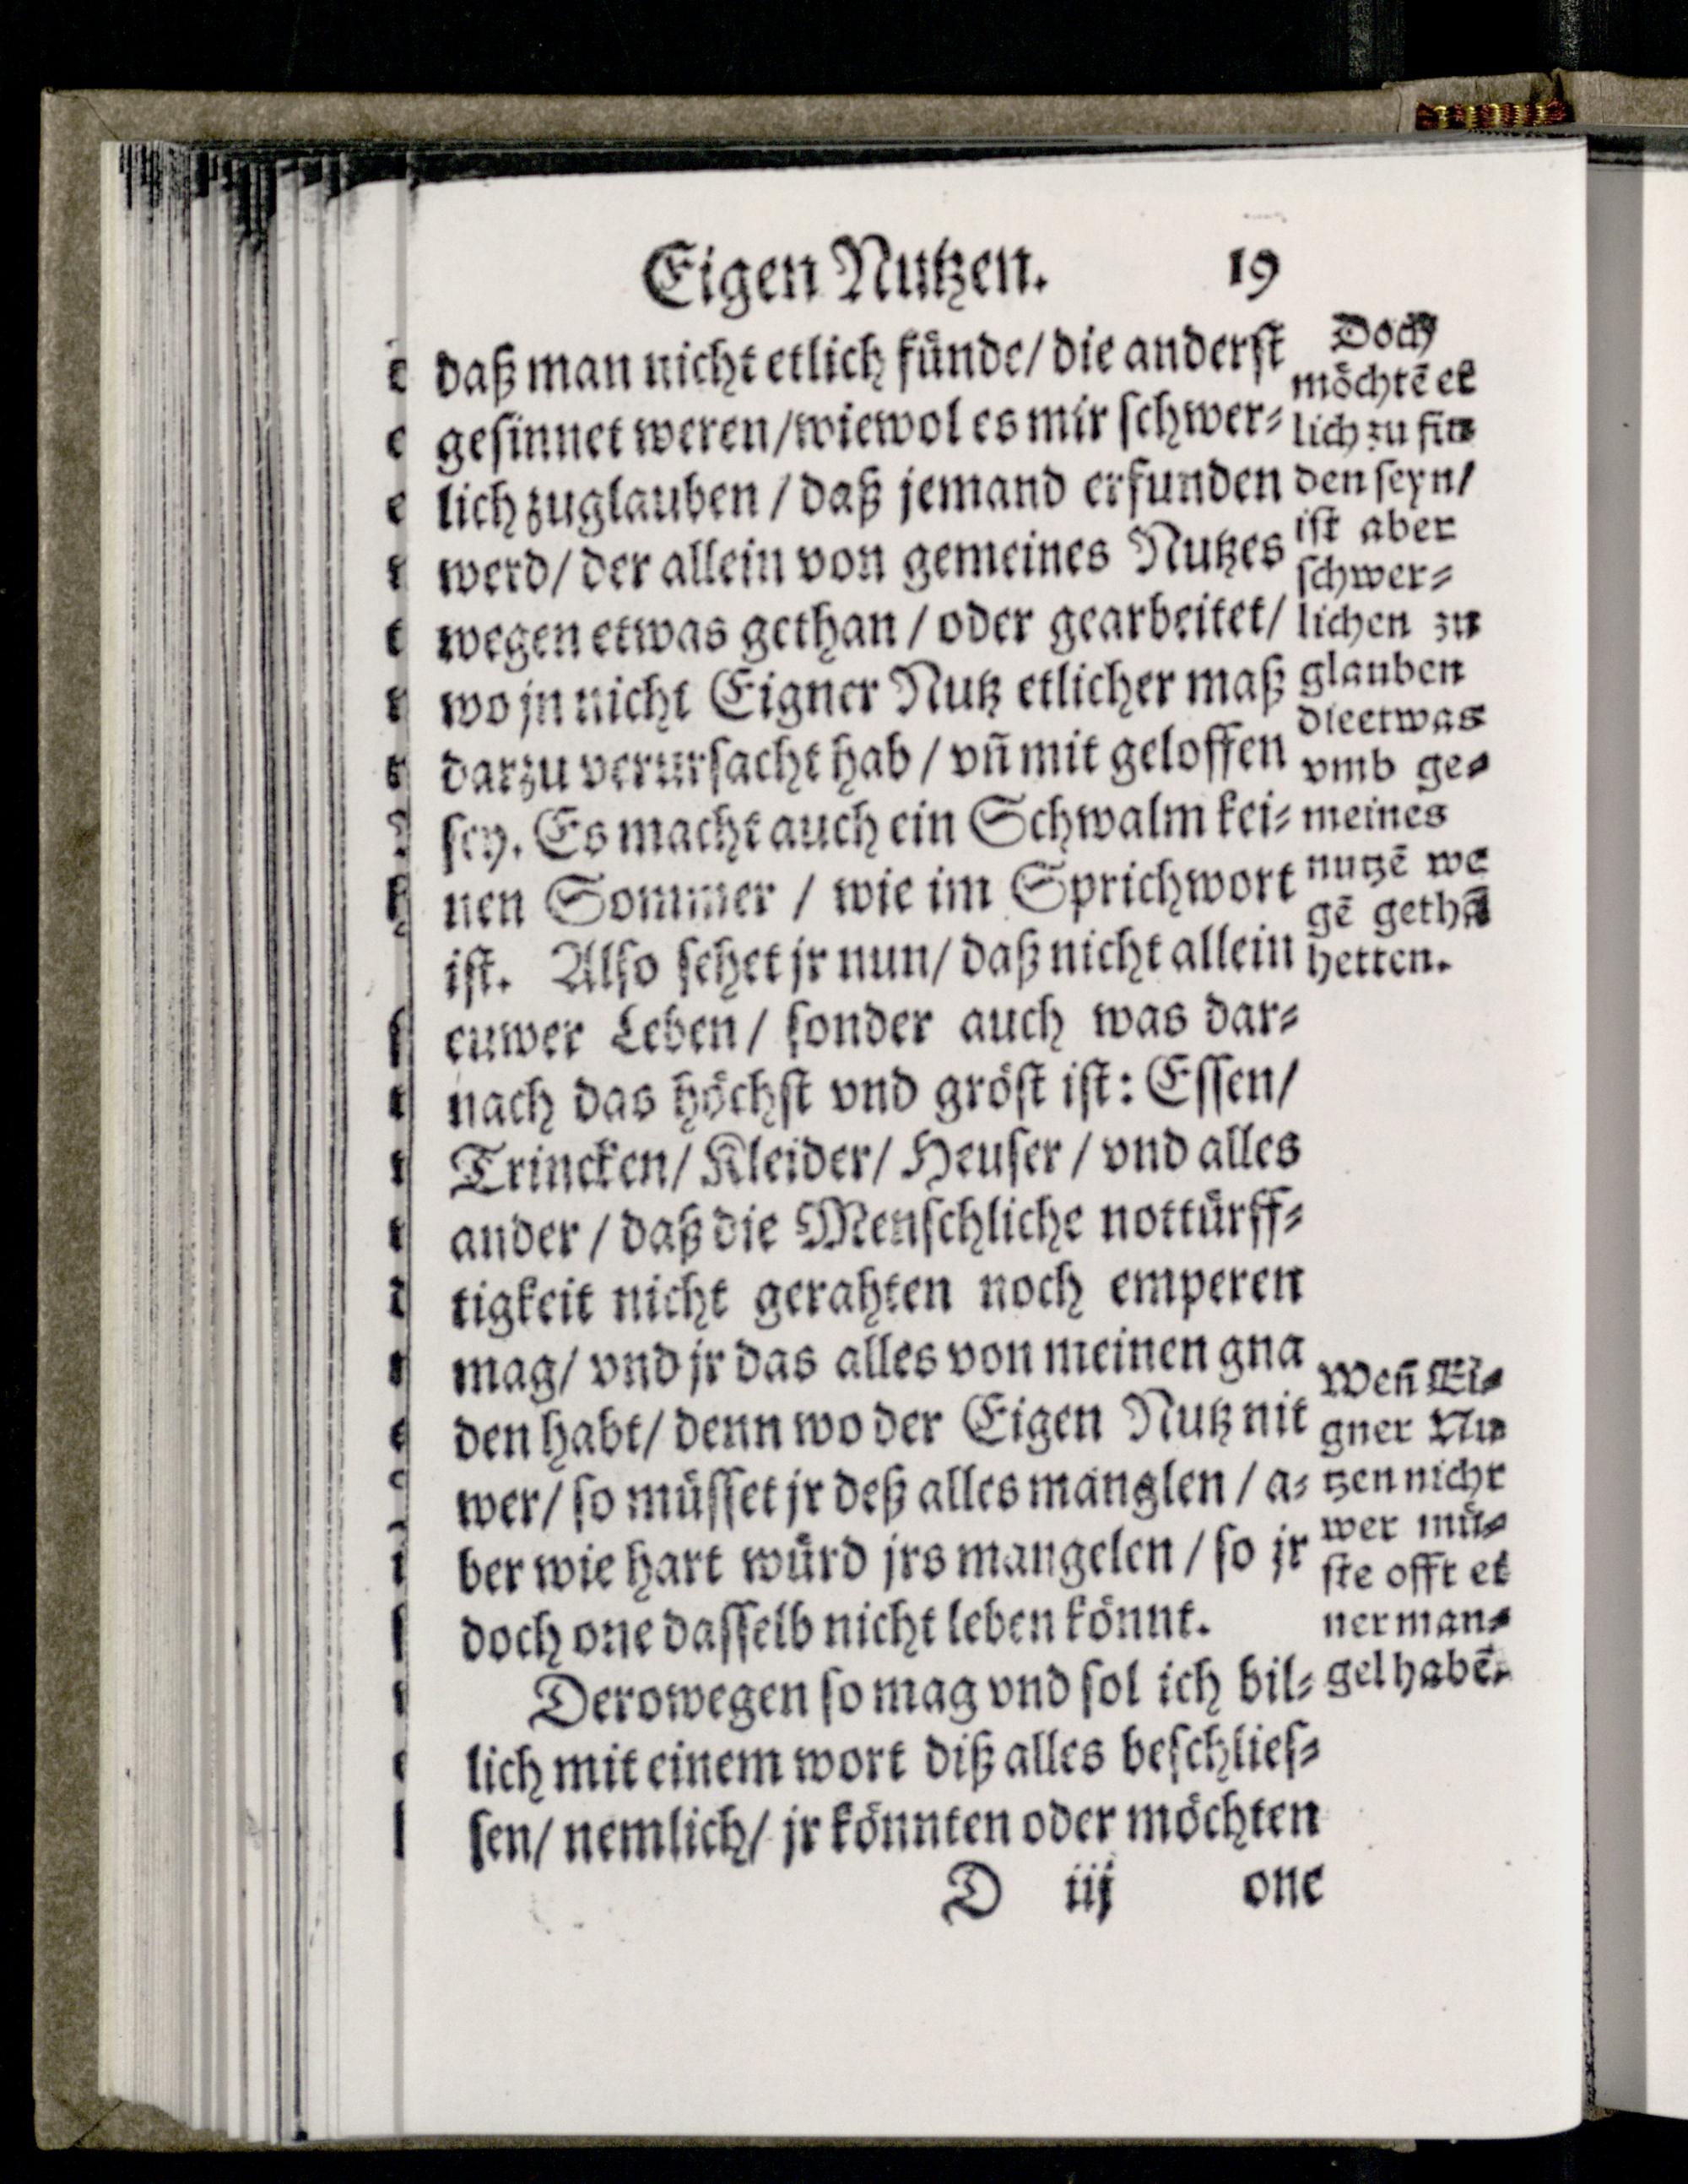 Eigen Nutzen. 19
daß man nicht etlich fünde/ die anderst
gesinnet weren/wiewol es mir schwer⸗
lich zuglauben / daß jemand erfunden
werd/ der allein von gemeines Nutzes
wegen etwas gethan / oder gearbeitet/
wo jn nicht Eigner Nutz etlicher maß
darzu verursacht hab / vñ mit geloffen
sey. Es macht auch ein Schwalm kei⸗
nen Sommer / wie im Sprichwort
ist. Also sehet jr nun/ daß nicht allein
euwer Leben / sonder auch was dar⸗
nach das höchst vnd gröst ist: Essen/
Trincken/ Kleider/ Heuser / vnd alles
ander / daß die Menschliche nottürff⸗
tigkeit nicht gerahten noch emperen
mag/ vnd jr das alles von meinen gna
den habt/ denn wo der Eigen Nutz nit
wer/ so müsset jr deß alles manglen / a⸗
ber wie hart würd jrs mangelen / so jr
doch one dasselb nicht leben könnt.
Derowegen so mag vnd sol ich bil⸗
lich mit einem wort diß alles beschlies⸗
sen/ nemlich/ jr könnten oder möchten
D iij one
Doch
möchtẽ et
lich zu fin
den seyn/
ist aber
schwer⸗
lichen zu
glauben
die etwas
vmb ge⸗
meines
nutzẽ we
gẽ gethã
hetten.
Weñ Ei⸗
gner Nu
tzen nicht
wer mü⸗
ste offt ei
ner man⸗
gel habẽ.